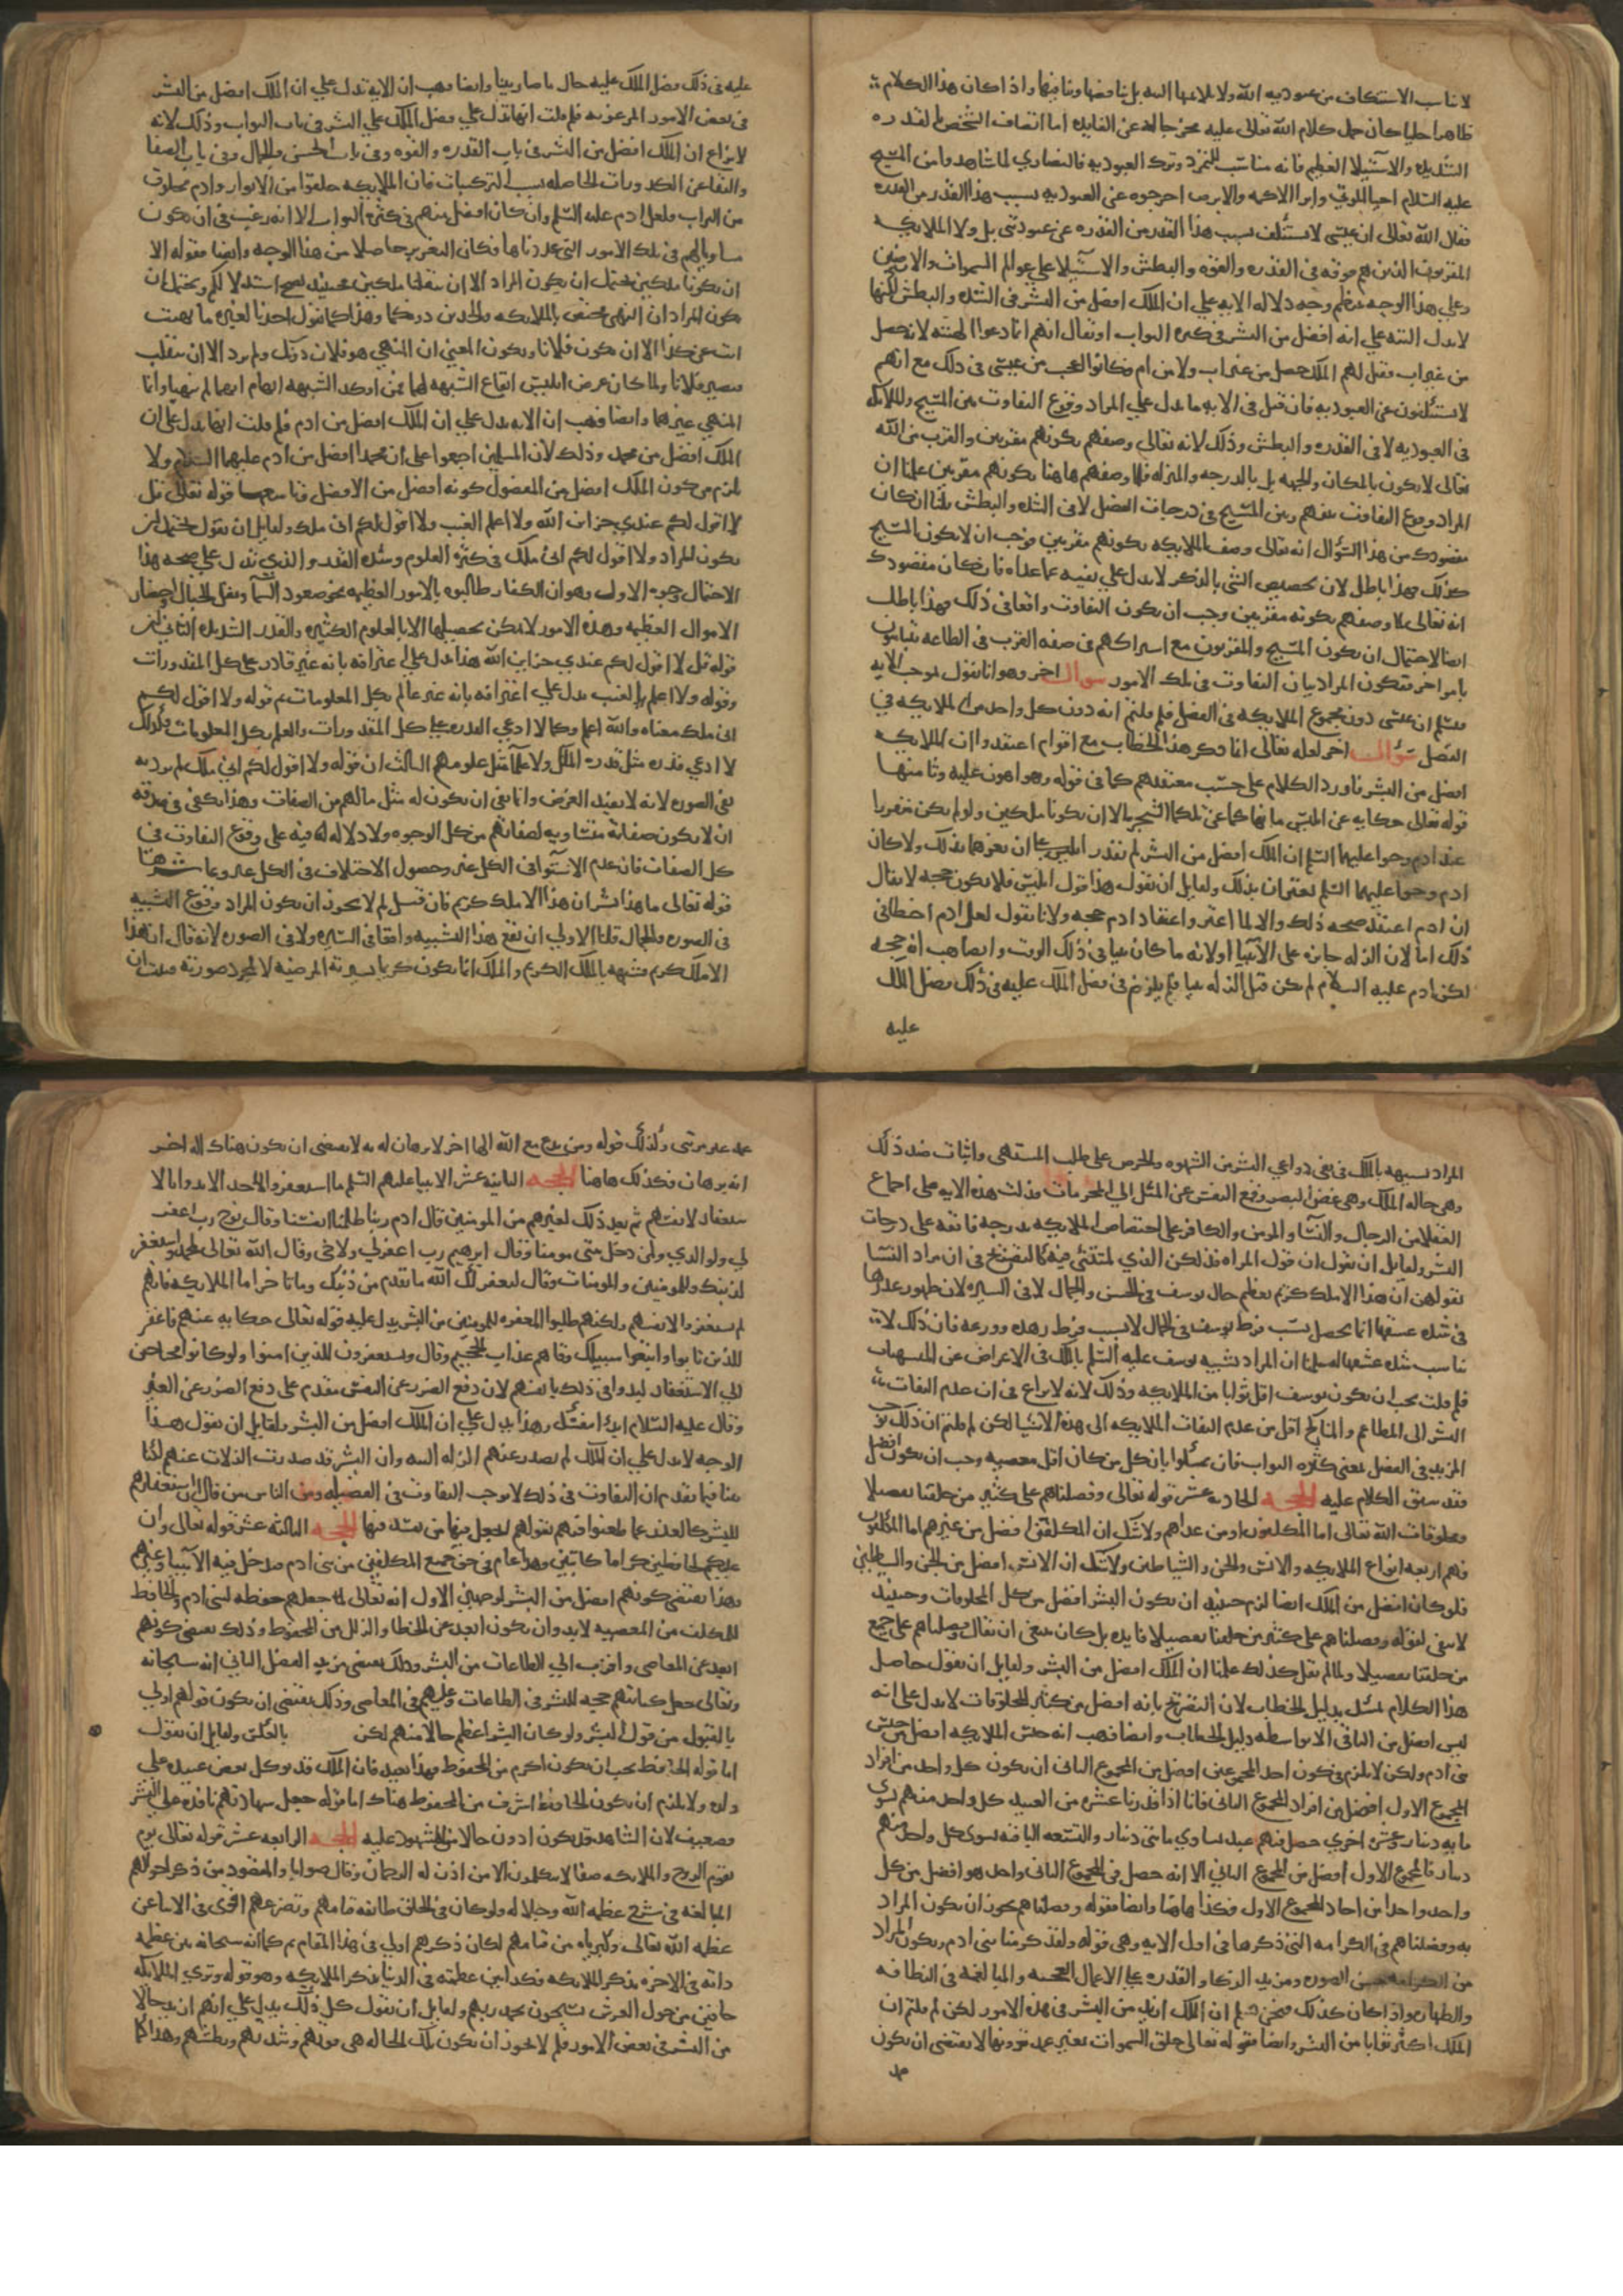 لا يناسب الاستنكاف من عبوديه الله ولا يلايمها البته بل يناقضها وينافيها واذا كان هذا الكلام
ظاهرا جليا كان حمل كلام الله تعالى عليه يخرجه عن الفايده اما اتصاف الشخص بالقدره
الشديده والاستيلا العظيم فانه مناسب للتمرد وترك العبوديه فالنصارى لما شاهدوا من المسيح
عليه السلام احيا الموتى وابرا الاكمه والابرص اخرجوه عن العبوديه بسبب هذا القدر من القدره
فقال الله تعالى ان عيسى لا يستنكف بسبب هذا القدر من القدره عن عبوديتى بل ولا الملايكه
المقربون الذين هم فوقه فى القدره والقوه والبطش والاستيلا على عوالم السموات والارضين
وعلى هذا الوجه ينتظم وجه دلاله الايه على ان الملك افضل من البشر فى الشده والبطش لكنها
لا يدل البته على انه افضل من البشر فى كثره الثواب او يقال انهم انما ادعوا الهيته لانه حصل
من غير اب فقيل لهم الملك حصل من غير اب ولا من ام فكانوا اعجب من عيسى فى ذلك مع انهم
لا يستنكفون عن العبوديه فان قيل فى الايه ما يدل على المراد وقوع التفاوت بين المسيح والملايكه
فى العبوديه لا فى القدره والبطش وذلك لانه تعالى وصفهم بكونهم مقربين والقرب من الله
تعالى لا يكون بالمكان والجهه بل بالدرجه والمنزله فلما وصفهم هاهنا بكونهم مقربين علمنا ان
المراد وقوع التفاوت بينهم وبين المسيح فى درجات الفضل لا فى الشده والبطش قلنا ان كان
مقصودك من هذا السؤال انه تعالى وصف الملايكه بكونهم مقربين فوجب ان لا يكون المسيح
كذلك فهذا باطل لان تخصيص الشى بالذكر لا يدل على نفيه عما عداه فان كان مقصودك
انه تعالى لما وصفهم بكونه مقربين وجب ان يكون التفاوت واقعا فى ذلك فهذا باطل
ايضا لاحتمال ان يكون المسيح والمقربون مع اشتراكهم فى صفه القرب فى الطاعه يتباينون
بامور اخر فيكون المراد بيان التفاوت فى تلك الامور سوال اخر وهو انا نقول بموجب الايه
فنسلم ان عيسى دون مجموع الملايكه فى الفضل فلم قلتم انه دون كل واحد من الملايكه فى
الفضل سوال اخر لعله تعالى انما ذكر هذا الخطاب مع اقوام اعتقدوا ان الملايكه
افضل من البشر فاورد الكلام على حسب معتقدهم كما فى قوله وهو اهون عليه وثامنها
قوله تعالى حكايه عن ابليس ما نهاكما عن تلكما الشجره الا ان تكونا ملكين ولو لم يكن متقررا
عند ادم وحوا عليهما السلم ان الملك افضل من البشر لم يقدر ابليس على ان يغرهما بذلك ولا كان
ادم وحوا عليهما السلم يغتران بذلك ولقايل ان يقول هذا قول ابليس فلا يكون حجه لا يقال
ان ادم اعتقد صحه ذلك والا لما اغتر واعتقاد ادم حجه ولانا نقول لعل ادم اخطا فى
ذلك اما لان الزله جايزه على الانبيا او لانه ما كان نبيا فى ذلك الوقت وايضا هب انه حجه
لكن ادم عليه السلام لم يكن قبل الزله نبيا فلم يلزم من فضل الملك عليه فى ذلك فضل الملك
عليه
عليه فى ذلك فضل الملك عليه حال ما صار نبيا وايضا وهب ان الايه تدل على ان الملك افضل من البشر
فى بعض الامور المرغبه فلم قلت انها تدل على فضل الملك على البشر فى باب الثواب وذلك لانه
لا نزاع ان الملك افضل من البشر فى باب القدره والقوه وفى باب الحسن والجمال وفى باب الصفا
والنقا عن الكدورات الحاصله بسبب التركيبات فان الملايكه خلقوا من الانوار وادم مخلوق
من التراب ولعل ادم عليه السلم وان كان افضل منهم فى كثره الثواب الا انه رغب فى ان يكون
مساويا لهم فى تلك الامور التى عددناها فكان التغرير حاصلا من هذا الوجه وايضا فقوله الا
ان تكونا ملكين يحتمل ان يكون المراد الا ان تنقلبا ملكين فحينئذ يصح استدلالكم ويحتمل ان
يكون المراد ان النهى مختص بالملايكه والخالدين دونكما وهذا كما يقول احدنا لغيره ما نهيت
انت عن كذا الا ان تكون فلانا ويكون المعنى ان المنهى هو فلان دونك ولم يرد الا ان تنقلب
فتصير فلانا ولما كان غرض ابليس ايقاع الشبهه لهما فمن اوكد الشبهه ايهام انهما لم ينهيا وانما
المنهى غيرهما وايضا فهب ان الايه تدل على ان الملك افضل من ادم فلم قلت انها تدل على ان
الملك افضل من محمد وذلك لان المسلمين اجمعوا على ان محمدا افضل من ادم عليهما السلام ولا
يلزم من كون الملك افضل من المفضول كونه افضل من الافضل وتاسعها قوله تعالى قل
لا اقول لكم عندى خزاين الله ولا اعلم الغيب ولا اقول لكم انى ملك ولقايل ان يقول يحتمل ان
يكون المراد ولا اقول لكم انى ملك فى كثره العلوم وشده القدره والذى يدل على صحه هذا
الاحتمال وجوه الاول وهو ان الكفار طالبوه بالامور العظيمه نحو صعود السما ونقل الجبال واحضار
الاموال العظيمه وهذه الامور لا يمكن تحصيلها الا بالعلوم الكثيره والقدره الشديده الثانى ان
قوله قل لا اقول لكم عندى خزاين الله هذا يدل على اعترافه بانه غير قادر على كل المقدورات
وقوله ولا اعلم الغيب يدل على اعترافه بانه غير عالم بكل المعلومات ثم قوله ولا اقول لكم
انى ملك معناه والله اعلم وكما لا ادعى القدره على كل المقدورات والعلم بكل المعلومات فكذلك
لا ادعى قدره مثل قدره الملك ولا علما مثل علومهم الثالث ان قوله ولا اقول لكم انى ملك لم يرد به
نفى الصوره لانه لا يفيد الغرض وانما نفى ان يكون له مثل ما لهم من الصفات وهذا يكفى فى صدقه
ان لا يكون صفاته متساويه لصفاتهم من كل الوجوه ولا دلاله فيه على وقوع التفاوت فى
كل الصفات فان عدم الاستوا فى الكل غير وحصول الاختلاف فى الكل غير وعاشرها
قوله تعالى ما هذا بشرا ان هذا الا ملك كريم فان قيل لم لا يجوز ان يكون المراد وقوع التشبيه
فى الصوره والجمال قلنا الاولى ان يقع هذا التشبيه واقعا فى السيره ولا فى الصوره لانه قال ان هذا
الا ملك كريم فشبهه بالملك الكريم والملك انما يكون كريما بسيرته المرضيه لا بمجرد صورته فثبت ان
المراد تشبيهه بالملك فى نفى دواعى البشر من الشهوه والحرص على طلب المشتهى واثبات ضد ذلك
وهى حاله الملك وهى غض البصر ومنع النفس عن الميل الى المحرمات فدلت هذه الايه على اجماع
العقلا من الرجال والنسا والمومن والكافر على اختصاص الملايكه بدرجه فايقه على درجات
البشر ولقايل ان يقول ان قول المراه فذلكن الذى لمتننى فيه كالتصريح فى ان مراد النسا
بقولهن ان هذا الا ملك كريم تعظيم حال يوسف فى الحسن والجمال لا فى السيره لان ظهور عذرها
فى شده عشقها انما يحصل بسبب فرط يوسف فى الجمال لا بسبب فرط زهده وورعه فان ذلك لا
يناسب شده عشقها له سلمنا ان المراد تشبيه يوسف عليه السلم بالملك فى الاعراض عن المشتهيات
فلم قلت يجب ان يكون يوسف اقل ثوابا من الملايكه وذلك لانه لا نزاع فى ان عدم التفات
البشر الى المطاعم والمناكح اقل من عدم التفات الملايكه الى هذه الاشيا لكن لم قلتم ان ذلك يوجب
المزيد فى الفضل بمعنى كثره الثواب فان تمسكوا بان كل من كان اقل معصيه وجب ان يكون افضل
فقد سبق الكلام عليه الحجه الحاديه عشر قوله تعالى وفضلناهم على كثير من خلقنا تفضيلا
ومخلوقات الله تعالى اما المكلفون او من عداهم ولا شك ان المكلفين افضل من غيرهم اما المكلفون
فهم اربعه انواع الملايكه والانس والجن والشياطين ولا شك ان الانس افضل من الجن والشياطين
فلو كان افضل من الملك ايضا لزم حينئذ ان يكون البشر افضل من كل المخلوقات وحينئذ
لا يبقى لقوله وفضلناهم على كثير من خلقنا تفضيلا فايده بل كان ينبغى ان يقال وفضلناهم على جميع
من خلقنا تفضيلا ولما لم يقل كذلك علمنا ان الملك افضل من البشر ولقايل ان يقول حاصل
هذا الكلام تمسك بدليل الخطاب لان التصريح بانه افضل من كثير المخلوقات لا يدل على انه
ليس افضل من الباقى الا بواسطه دليل الخطاب وايضا فهب انه جنس الملايكه افضل من جنس
بنى ادم ولكن لا يلزم من كون احد المجموعين افضل من المجموع الثانى ان يكون كل واحد من افراد
المجموع الاول افضل من افراد المجموع الثانى فانا اذا قدرنا عشره من العبيد كل واحد منهم يسوى
مايه دينار وعشره اخرى حصل فيهم عبد يساوى مايتى دينار والتسعه الباقيه يسوى كل واحد منهم
دينار فالمجموع الاول افضل من المجموع الثانى الا انه حصل فى المجموع الثانى واحد هو افضل من كل
واحد واحد من احاد المجموع الاول فكذا هاهنا وايضا فقوله وفضلناهم يجوز ان يكون المراد
به وفضلناهم فى الكرامه التى ذكرها فى اول الايه وهى قوله ولقد كرمنا بنى ادم ويكون المراد
من الكرامه حسن الصوره ومزيد الذكا والقدره على الاعمال العجيبه والمبالغه فى النظافه
والطهاره واذا كان كذلك فنحن نسلم ان الملك ازيد من البشر فى هذه الامور لكن لم قلتم ان
الملك اكثر ثوابا من البشر وايضا فقوله تعالى خلق السموات بغير عمد ترونها لا يقتضى ان يكون
عمد غير مرئى وكذلك قوله ومن يدع مع الله الها اخر لا برهان له به لا يقتضى ان يكون هناك اله اخر
له برهان فكذلك هاهنا الحجه الثانيه عشر الانبيا عليهم السلم ما استغفروا لاحد الا بدوا بالا
ستغفار لانفسهم ثم بعد ذلك لغيرهم من المومنين قال ادم ربنا ظلمنا انفسنا وقال نوح رب اغفر
لى ولوالدى ولمن دخل بيتى مومنا وقال ابرهيم رب اغفر لى ولاخى وقال الله تعالى لمحمد واستغفر
لذنبك وللمومنين والمومنات وقال ليغفر لك الله ما تقدم من ذنبك وما تاخر اما الملايكه فانهم
لم يستغفروا لانفسهم ولكنهم طلبوا المغفره للمومنين من البشر يدل عليه قوله تعالى حكايه عنهم فاغفر
للذين تابوا واتبعوا سبيلك وقهم عذاب الجحيم وقال ويستغفرون للذين امنوا ولو كانوا محتاجين
الى الاستغفار لبدوا فى ذلك بانفسهم لان دفع الضرر عن النفس مقدم على دفع الضرر عن الغير
وقال عليه السلام ابدا بنفسك وهذا يدل على ان الملك افضل من البشر ولقايل ان يقول هذا
الوجه لا يدل على ان الملك لم يصدر عنهم الزله البته وان البشر قد صدرت الزلات عنهم لكنا
بينا فيما تقدم ان التفاوت فى ذلك لا يوجب التفاوت فى الفضيله ومن الناس من قال ان استغفارهم
للبشر كالعذر عما طعنوا فيهم بقولهم اتجعل فيها من يفسد فيها الحجه الثالثه عشر قوله تعالى وان
عليكم لحافظين كراما كاتبين وهذا عام فى حق جميع المكلفين من بنى ادم فدخل فيه الانبيا وغيرهم
وهذا يقتضى كونهم افضل من البشر لوجهين الاول انه تعالى جعلهم حفظه لبنى ادم والحافظ
للمكلف من المعصيه لابد وان يكون ابعد عن الخطا والزلل من المحفوظ وذلك يقتضى كونهم
ابعد عن المعاصى واقرب الى الطاعات من البشر وذلك يقتضى مزيد الفضل الثانى انه سبحانه
وتعالى جعل كتابتهم حجه للبشر فى الطاعات وعليهم فى المعاصى وذلك يقتضى ان يكون قولهم اولى
بالقبول من قول البشر ولو كان البشر اعظم حالا منهم لكن بالعكس ولقايل ان يقول
اما قوله الحافظ يجب ان يكون اكرم من المحفوظ فهذا بعيد فان الملك قد يوكل بعض عبيده على
ولده ولا يلزم ان يكون الحافظ اشرف من المحفوظ هناك اما قوله جعل شهادتهم نافذه على البشر
فضعيف لان الشاهد قد يكون ادون حالا من المشهود عليه الحجه الرابعه عشر قوله تعالى يوم
يقوم الروح والملايكه صفا لا يتكلمون الا من اذن له الرحمان وقال صوابا والمقصود من ذكر احوالهم
المبالغه فى شرح عظمه الله وجلاله ولو كان فى الخلق طايفه قيامهم وتضرعهم اقوى فى الانباء عن
عظمه الله تعالى وكبريايه من قيامهم لكان ذكرهم اولى فى هذا المقام ثم كما انه سبحانه بين عظمه
ذاته فى الاخره بذكر الملايكه فكذا بين عظمته فى الدنيا بذكر الملايكه وهو قوله وترى الملايكه
حافين من حول العرش يسبحون بحمد ربهم ولقايل ان يقول كل ذلك يدل على انهم ازيد حالا
من البشر فى بعض الامور فلم لا يجوز ان يكون تلك الحاله هى قوتهم وشدتهم وبطشهم وهذا كما